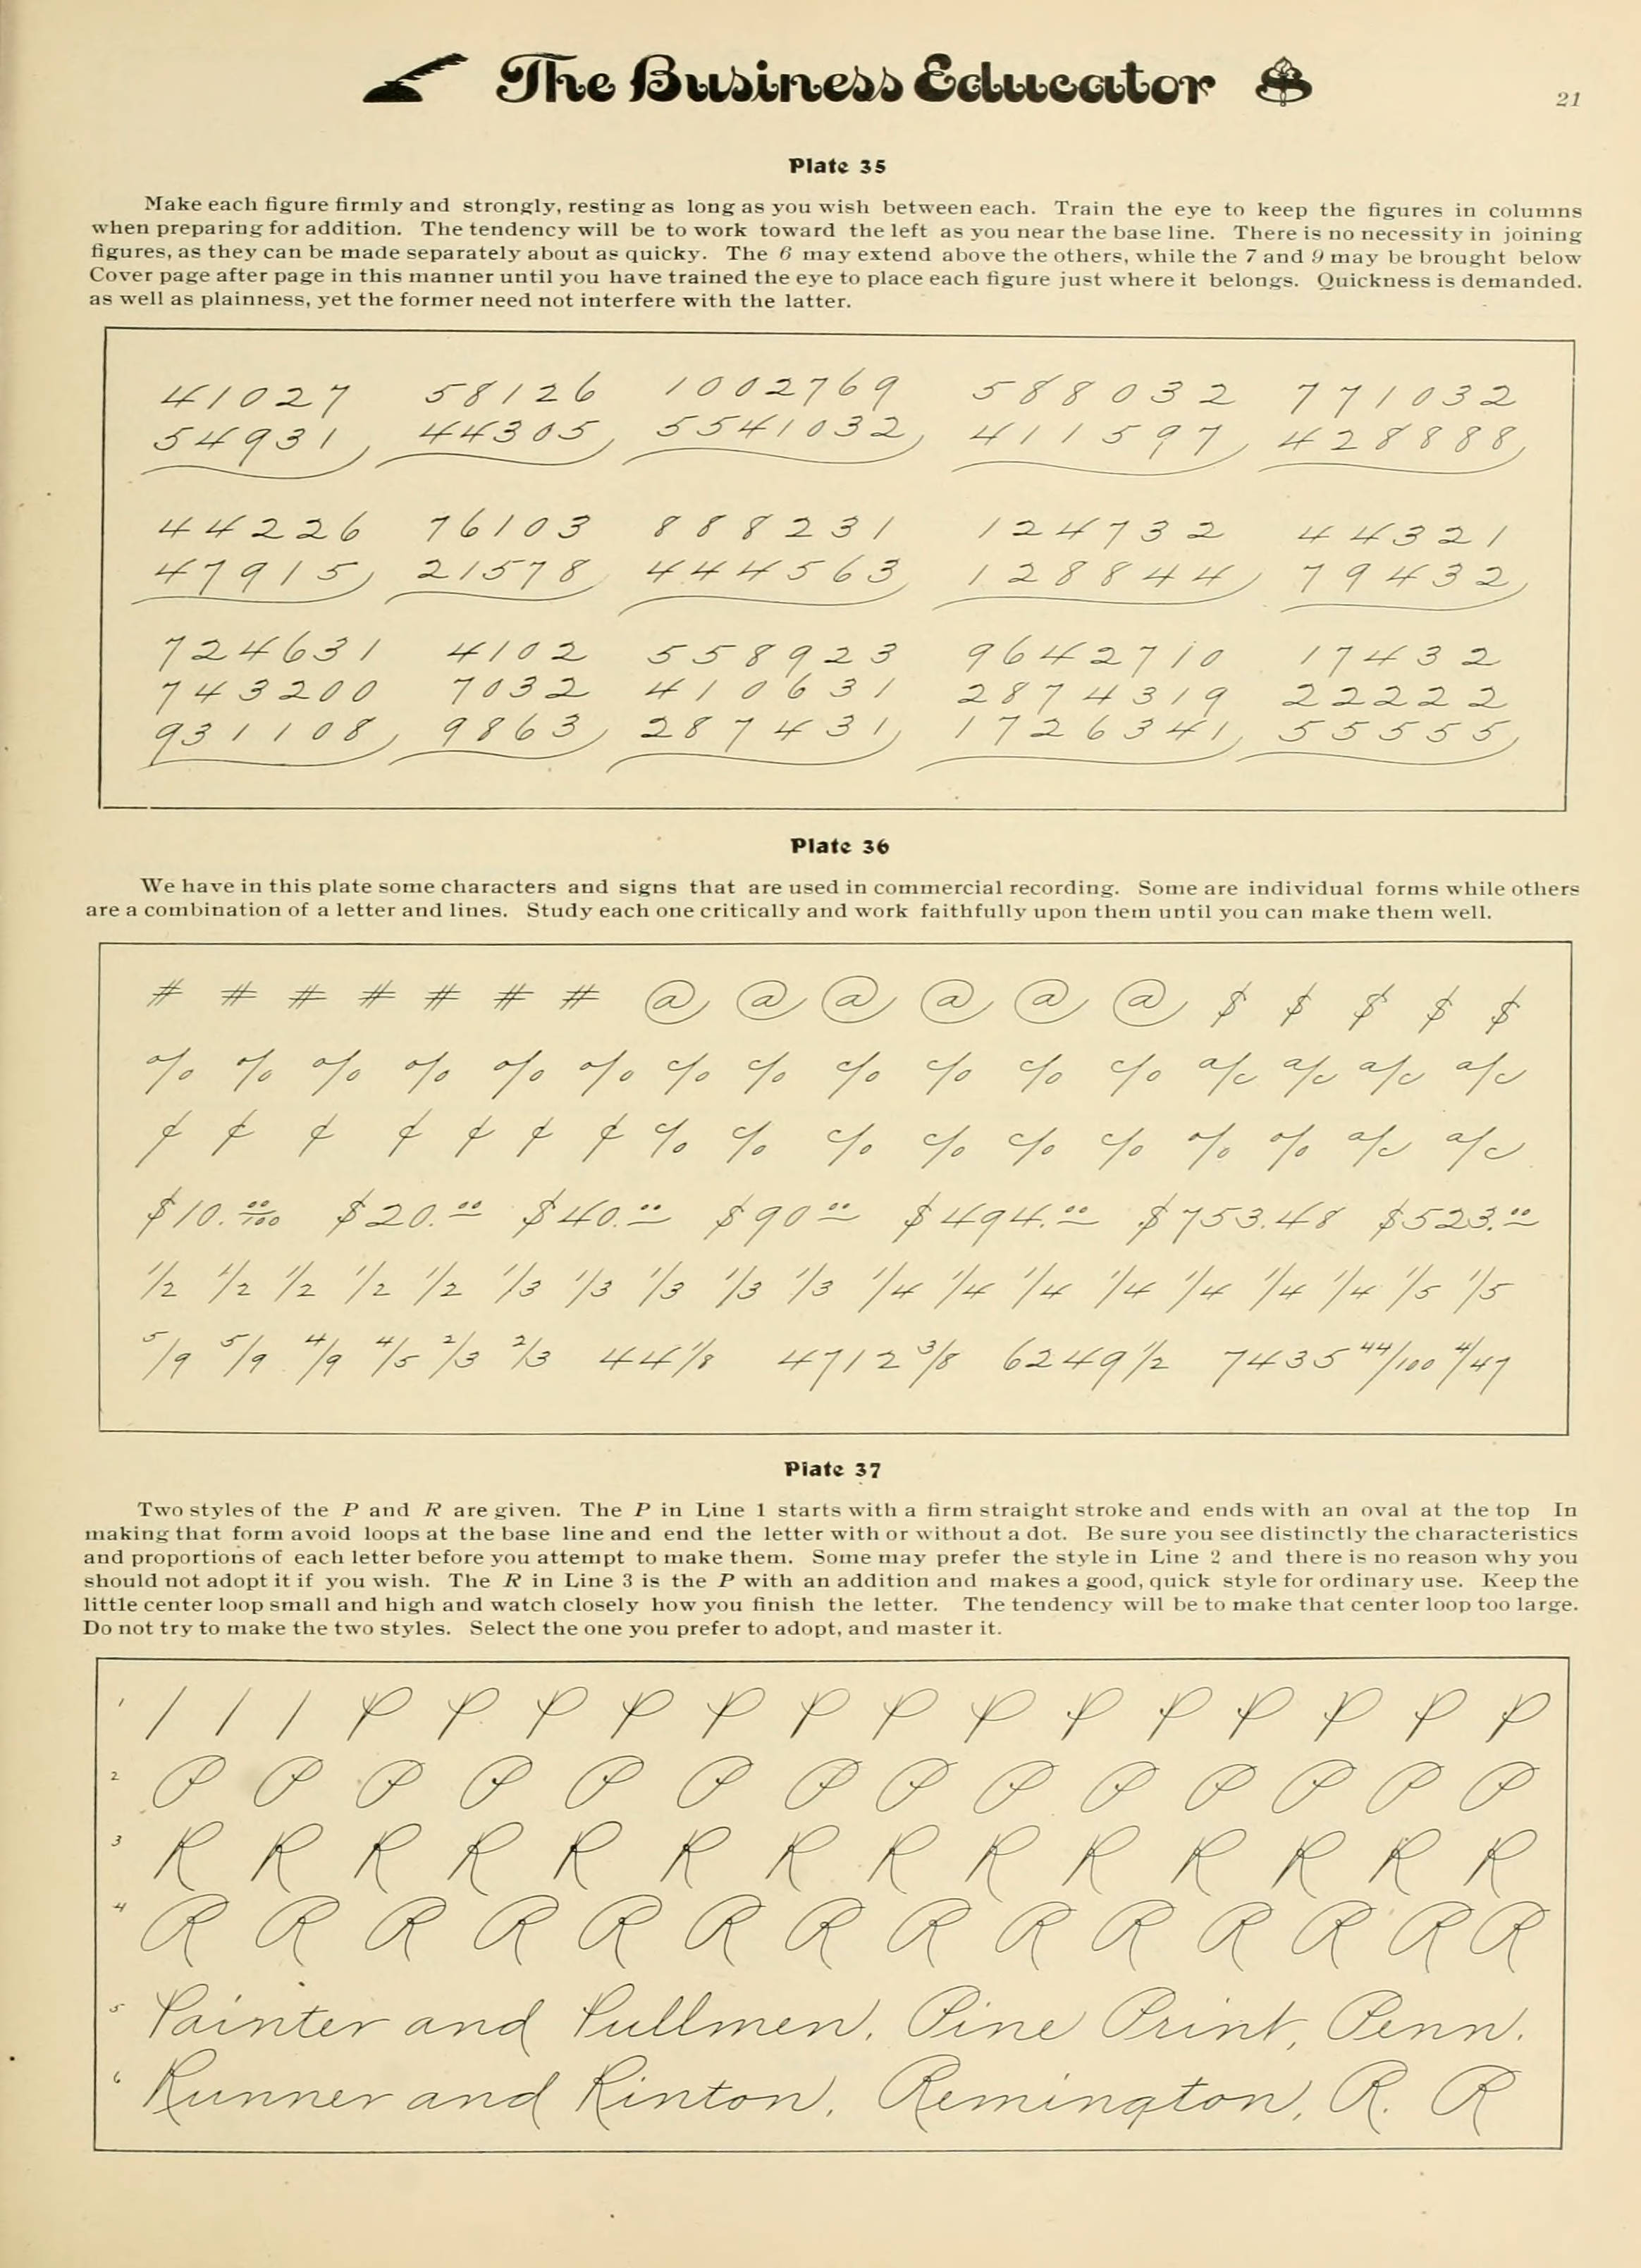 The Business Educator
21
Plate 35
Make each figure firmly and strongly, resting as long as you wish between each. Train the eye to keep the figures in columns
when preparing for addition. The tendency will be to work toward the left as you near the base line. There is no necessity in joining
figures, as they can be made separately about as quicky. The 6 may extend above the others, while the 7 and 9 may be brought below
Cover page after page in this manner until you have trained the eye to place each figure just where it belongs. Quickness is demanded.
as well as plainness, yet the former need not interfere with the latter.
41027 58126 1002769 588032 771032
54931 44305 5541032 411597 428888
44226 76103 888231 124732 44321
47915 21578 444563 128844 79432
724631 4102 558923 9642710 17432
743200 7032 410631 2874319 22222
931108 9863 287431 1726341 55555
Plate 36
We have in this plate some characters and signs that are used in commercial recording. Some are individual forms while others
are a combination of a letter and lines. Study each one critically and work faithfully upon them until you can make them well.
# # # # # # # @ @ @ @ @ @ $ $ $ $ $
% % % % % % c/o c/o c/o c/o c/o c/o a/c a/c a/c a/c
¢ ¢ ¢ ¢ ¢ ¢ ¢ c/o c/o c/o c/o c/o c/o % % a/c a/c
$10.00/100 $20.00 $40.00 $90 00 $494.00 $753.48 $523.00
1/2 1/2 1/2 1/2 1/2 1/3 1/3 1/3 1/3 1/3 1/4 1/4 1/4 1/4 1/4 1/4 1/4 1/5 1/5
5/9 5/9 4/9 4/5 2/3 2/3 44 1/8 4712 3/8 6249 1/2 7435 44/100 4/47
Plate 37
Two styles of the P and R are given. The P in Line 1 starts with a firm straight stroke and ends with an oval at the top In
making that form avoid loops at the base line and end the letter with or without a dot. Be sure you see distinctly the characteristics
and proportions of each letter before you attempt to make them. Some may prefer the style in Line 2 and there is no reason why you
should not adopt it if you wish. The R in Line 3 is the P with an addition and makes a good, quick style for ordinary use. Keep the
little center loop small and high and watch closely how you finish the letter. The tendency will be to make that center loop too large.
Do not try to make the two styles. Select the one you prefer to adopt, and master it.
1 / / / P P P P P P P P P P P P P P
2 P P P P P P P P P P P P P P
3 R R R R R R R R R R R R R R
4 R R R R R R R R R R R R R R
5 Painter and Pullmen. Pine Print, Penn.
6 Runner and Rinton. Remington, R. R